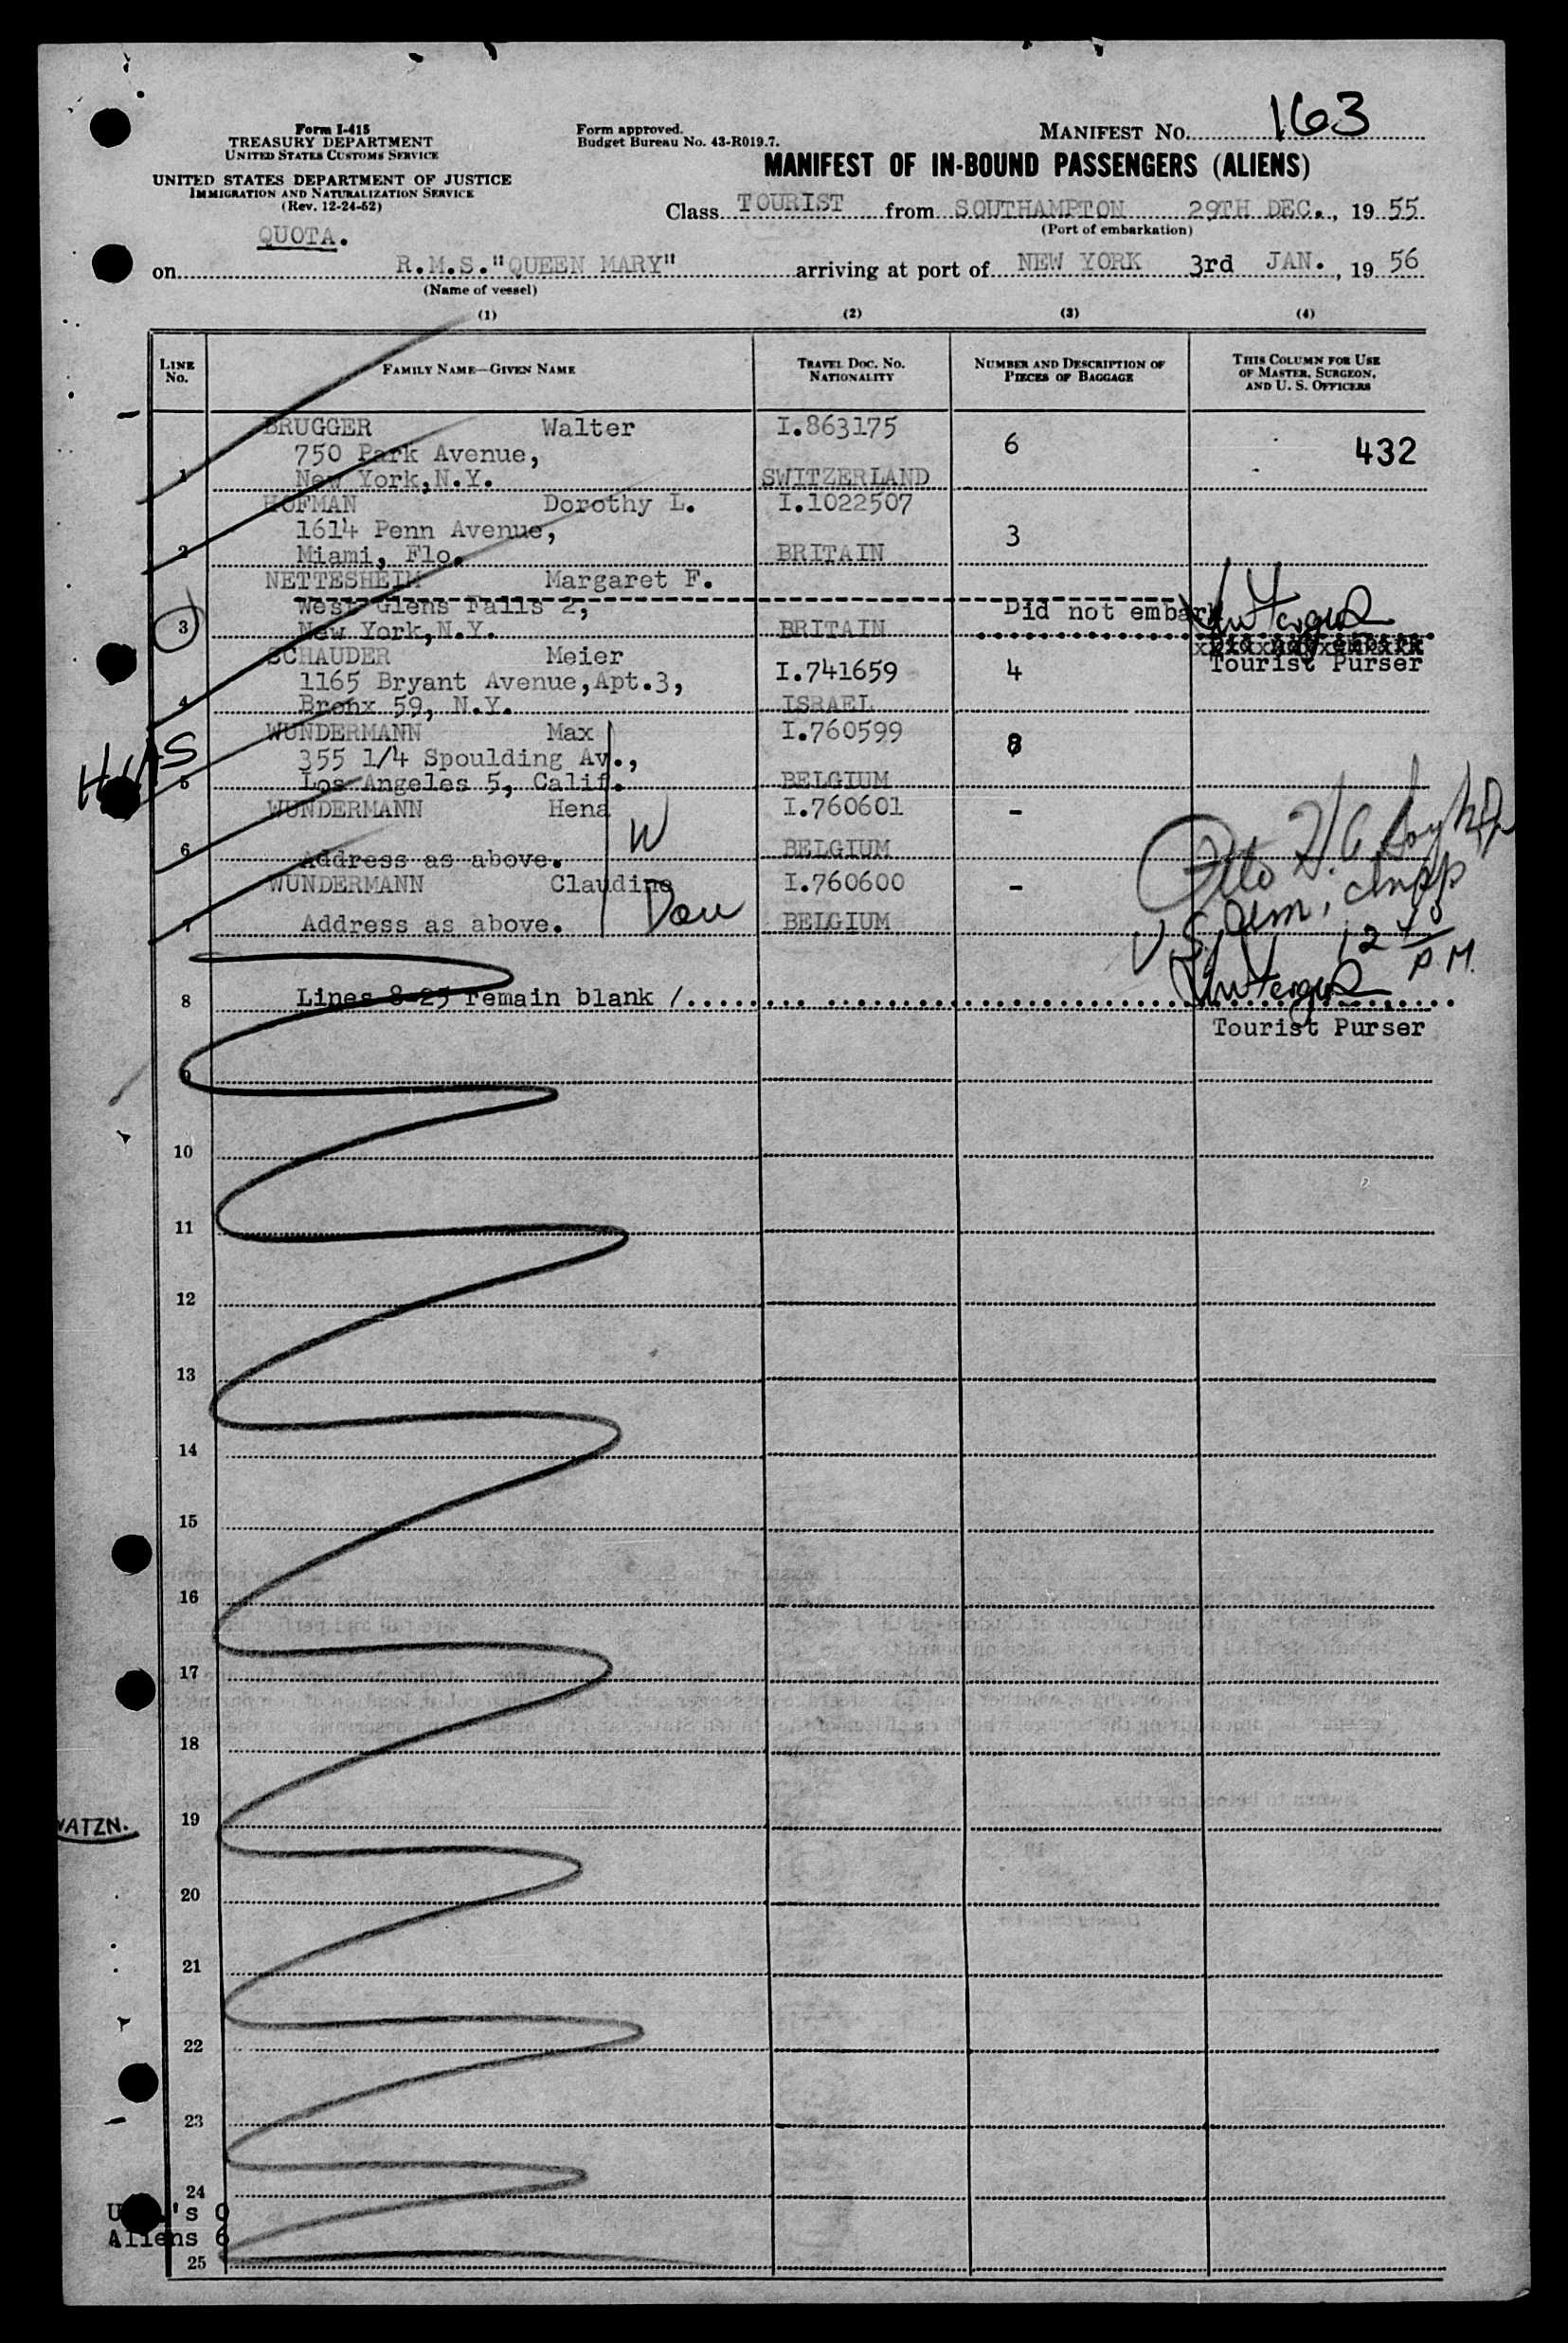 Form I-415
TREASURY DEPARTMENT
UNITED STATES CUSTOMS SERVICE
UNITED STATES DEPARTMENT OF JUSTICE
IMMIGRATION AND NATURALIZATION SERVICE
(Rev. 12-24-52)
QUOTA.
Form approved.
Budget Bureau No. 43-R019.7.
MANIFEST No. 163
MANIFEST OF IN-BOUND PASSENGERS (ALIENS)
Class TOURIST from SOUTHAMPTON 29TH DEC., 19 55
(Port of embarkation)
on R.M.S. "QUEEN MARY" arriving at port of NEW YORK 3rd JAN., 19 56
(Name of vessel)
(1) (2) (3) (4)
LINE No. FAMILY NAME—GIVEN NAME TRAVEL DOC. No. NATIONALITY NUMBER AND DESCRIPTION OF PIECES OF BAGGAGE THIS COLUMN FOR USE OF MASTER, SURGEON, AND U. S. OFFICERS
BRUGGER Walter I.863175
750 Park Avenue, 6 432
1 New York,N.Y. SWITZERLAND
HOFMAN Dorothy L. I.1022507
1614 Penn Avenue, 3
2 Miami, Flo. BRITAIN
NETTESHEIM Margaret F.
West Glens Falls 2, Did not embark
3 New York,N.Y. BRITAIN
SCHAUDER Meier Tourist Purser
1165 Bryant Avenue,Apt.3, I.741659 4
4 Bronx 59, N.Y. ISRAEL
WUNDERMANN Max I.760599
HIAS 355 1/4 Spoulding Av., 8
5 Los Angeles 5, Calif. BELGIUM
WUNDERMANN Hena I.760601 -
W
6 Address as above. BELGIUM
WUNDERMANN Claudine I.760600 -
7 Address as above. Dau BELGIUM
12 40 P.M.
8 Lines 8-25 remain blank /
Tourist Purser
9
10
11
12
13
14
15
16
17
18
19
NATZN.
20
21
22
23
24
U 's 0
Aliens 6
25